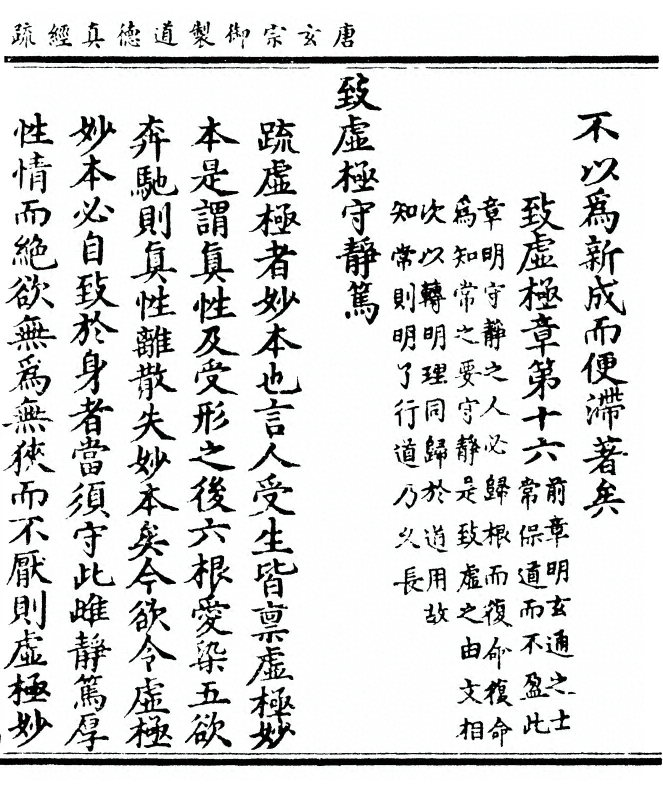 唐玄宗御製道德真經疏
不以為新成而便滯著矣
致虛極章第十六
前章明玄通之士
常保道而不盈此
章明守靜之人必歸根而復命復命
為知常之要守靜是致虛之由文相
次以轉明理同歸於道用故
知常則明了行道乃久長
致虛極守靜篤
疏虛極者妙本也言人受生皆禀虛極妙
本是謂真性及受形之後六根愛染五欲
奔馳則真性離散失妙本矣今欲令虛極
妙本必自致於身者當須守此雌靜篤厚
性情而絕欲無為無狹而不厭則虛極妙